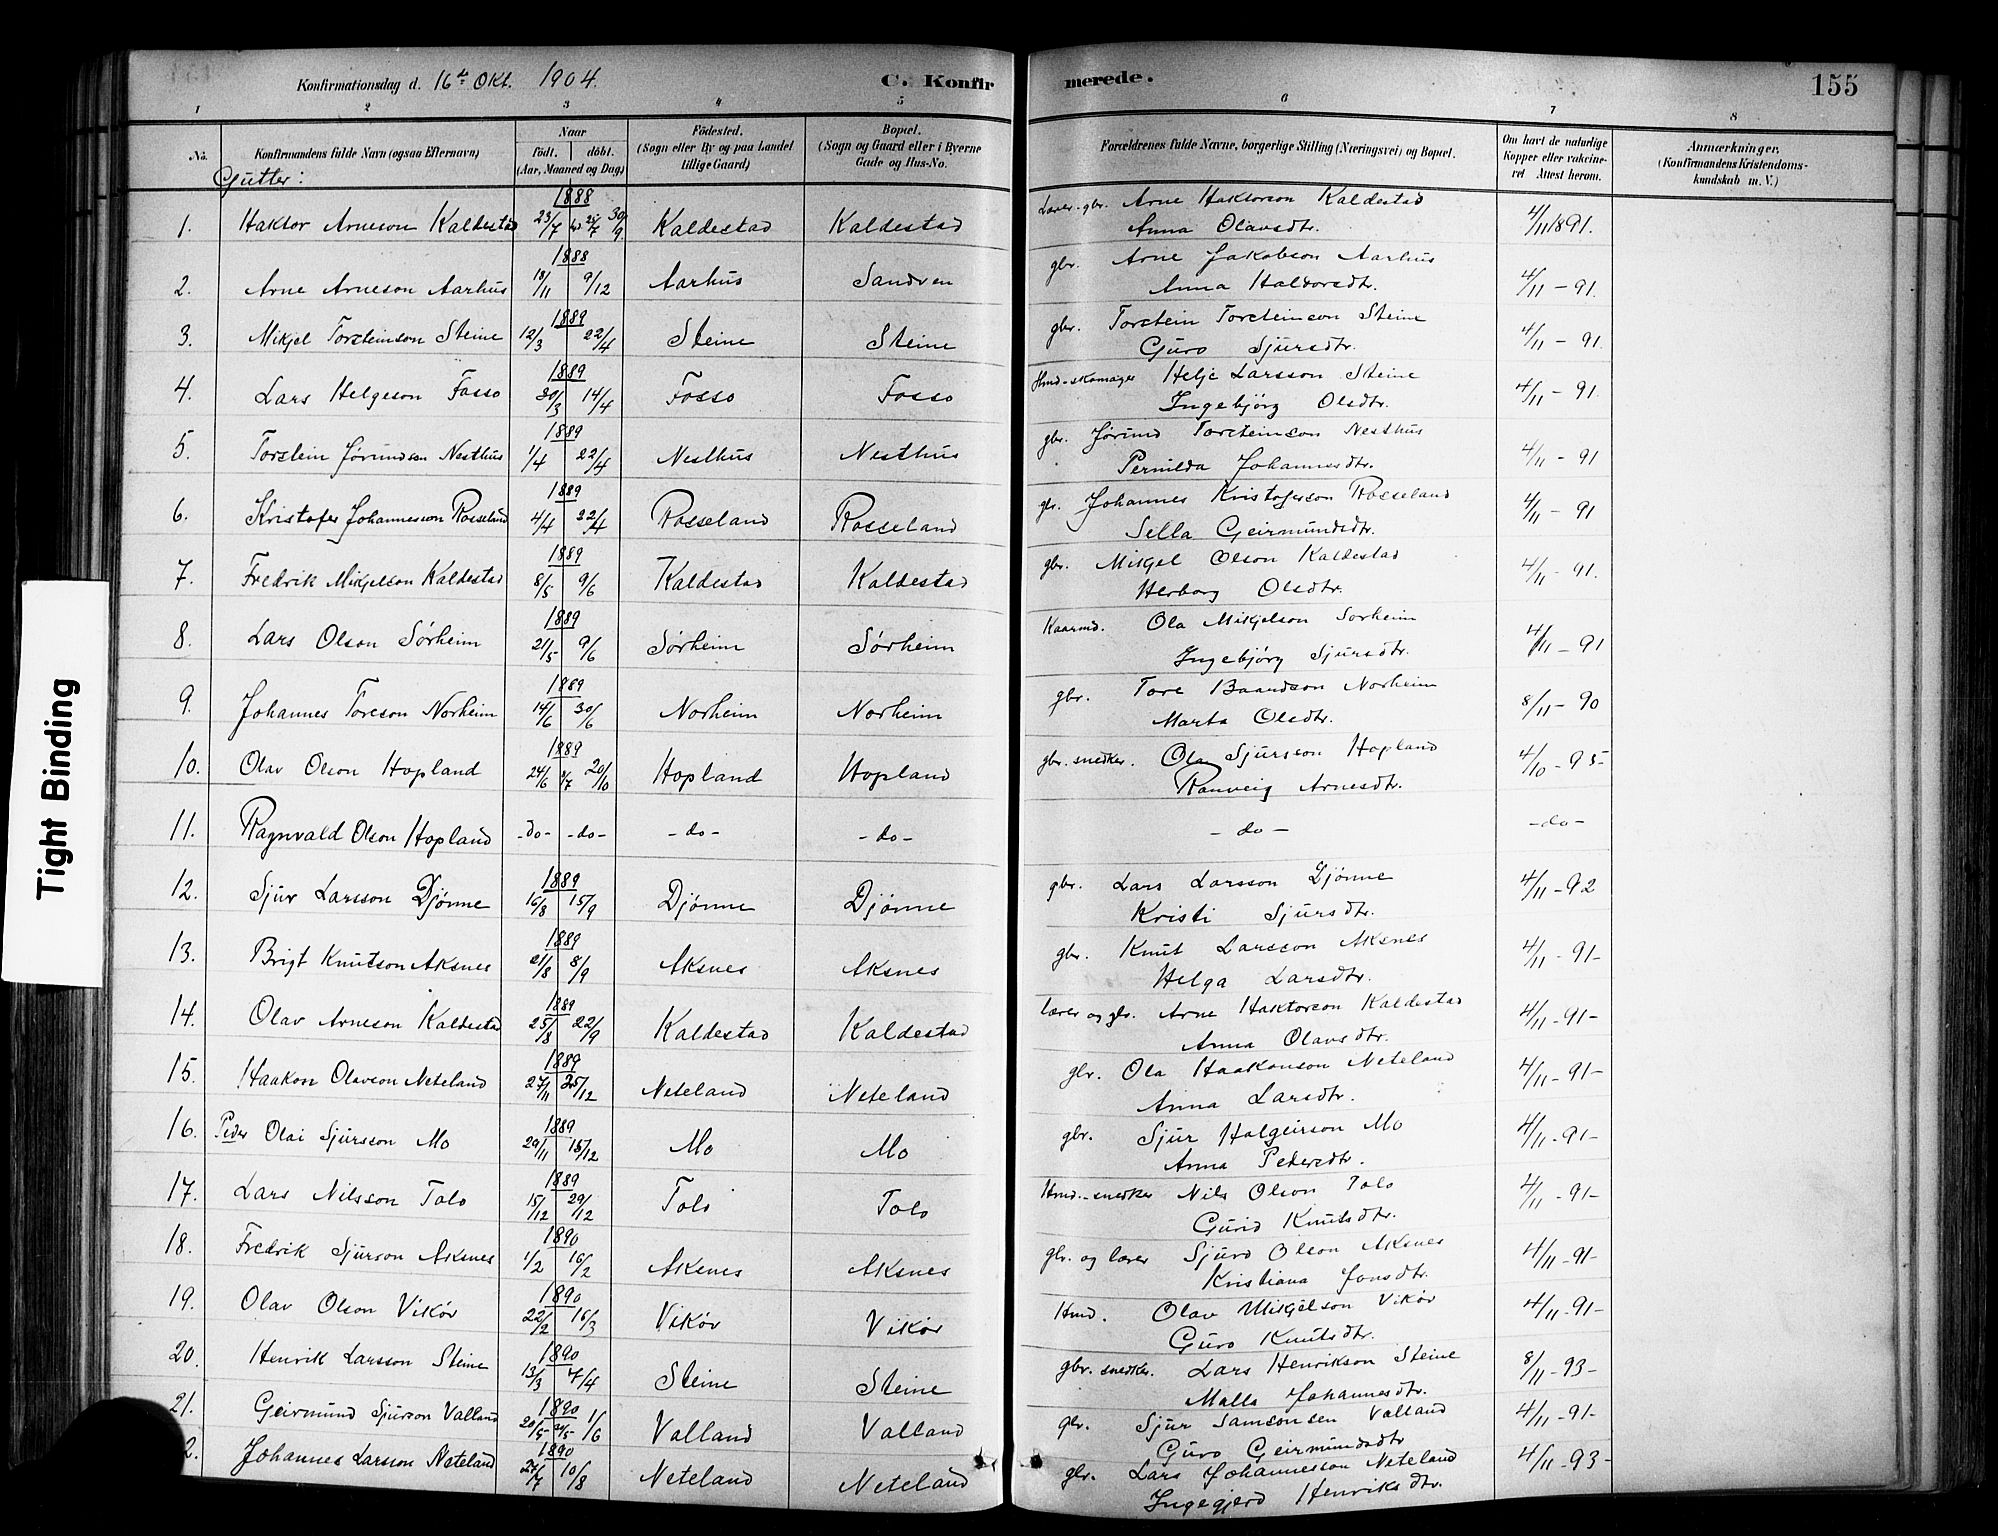 Konfirmationsdag d. 16de Okt. 1904. C. Konfirmerede. 155
1 2 3 4 5 6 7 8
No. Konfirmandens fulde Navn (ogsaa Efternavn) Naar født. døbt. (Aar, Maaned og Dag) Fødested. (Sogn eller By og paa Landet tillige Gaard) Bopæl. (Sogn og Gaard eller i Byerne Gade og Hus-No. Forældrenes fulde Navne, borgerlige Stilling (Næringsvei) og Bopæl. Om havt de naturlige Kopper eller vakcineret Attest herom. Anmærkninger. (Konfirmandens Kristendomskundskab m. V.)
Gutter:
1. Haktor Arneson Kaldestad 1888 23/7 30/9 Kaldestad Kaldestad Lærer. gbr. Arne Haktorson Kaldestad 4/11 1891.
Anna Olavsdtr.
2. Arne Arneson Aarhus 1888 18/11 9/12 Aarhus Sandven gbr. Arne Jakobson Aarhus 4/11 - 91.
Anna Haldorsdtr.
3. Mikjel Torsteinson Steine 1889 12/3 22/4 Steine Steine gbr. Torstein Torsteinson Steine 4/11 - 91.
Guro Sjursdtr.
4. Lars Helgeson Fosso 1889 30/3 14/4 Fosso Fosso Hmd.-skomager Helje Larsson Steine 4/11 - 91.
Ingebjørg Olsdtr.
5. Torstein Jørundson Nesthus 1889 1/4 22/4 Nesthus Nesthus gbr. Jørund Torsteinson Nesthus 4/11 - 91
Pernilda Johannesdtr.
6. Kristofer Johannesson Rosseland 1889 4/4 22/4 Rosseland Rosseland gbr. Johannes Kristoferson Rosseland 4/11 - 91
Sella Geirmundsdtr.
7. Fredrik Mikjelson Kaldestad 1889 8/5 9/6 Kaldestad Kaldestad gbr. Mikjel Olson Kaldestad 4/11 - 91.
Herborg Olsdtr.
8. Lars Olson Sørheim 1889 21/5 9/6 Sørheim Sørheim Kaarmd. Ola Mikjelson Sørheim 4/11 - 91
Ingebjørg Sjursdtr.
9. Johannes Toreson Norheim 1889 14/6 30/6 Norheim Norheim gbr. Tore Baardson Norheim 8/11 - 90
Marta Olsdtr.
10. Olav Olson Hopland 1889 24/6 3/7 20/10 Hopland Hopland gbr. snedker. Ola Sjursson Hopland 4/10 - 95
Ranveig Arnesdtr.
11. Ragnvald Olson Hopland -do- -do- -do- -do- -do- -do-
12. Sjur Larsson Djønne 1889 16/8 15/9 Djønne Djønne gbr. Lars Larsson Djønne 4/11 - 92
Kristi Sjursdtr.
13. Brigt Knutson Aksnes 1889 21/8 8/9 Aksnes Aksnes gbr. Knut Larsson Aksnes 4/11 - 91-
Helga Larsdtr.
14. Olav Arneson Kaldestad 1889 25/8 22/9 Kaldestad Kaldestad lærer og gbr. Arne Haktorson Kaldestad 4/11 - 91-
Anna Olavsdtr.
15. Haakon Olavson Neteland 1889 27/11 25/12 Neteland Neteland gbr. Ola Haakonson Neteland 4/11 - 91-
Anna Larsdtr.
16. Peder Olai Sjursson Mo 1889 29/11 15/12 Mo Mo gbr. Sjur Holgeirson Mo 4/11 - 91-
Anna Pedersdtr.
17. Lars Nilsson Tolo 1889 15/12 29/12 Tolo Tolo Hmd.-snedker Nils Olson Tolo 4/11 - 91-
Gurid Knutsdtr.
18. Fredrik Sjurson Aksnes 1890 1/2 16/2 Aksnes Aksnes gbr. og lærer Sjurd Olson Aksnes 4/11 - 91-
Kristiana Jonsdtr.
19. Olav Olson Vikør 1890 22/2 16/3 Vikør Vikør Hmd. Olav Mikjelson Vikør 4/11 - 91-
Guro Knutsdtr.
20. Henrik Larsson Steine 1890 13/3 7/4 Steine Steine gbr. snedker. Lars Henrikson Steine 8/11 - 93-
Malla Johannesdtr.
21. Geirmund Sjurson Valland 1890 20/5 24/5 1/6 Valland Valland gbr. Sjur Samsonsen Valland 4/11 - 91-
Guro Geirmundsdtr
2. Johannes Larsson Neteland 1890 27/7 10/8 Neteland Neteland gbr. Lars Johannesson Neteland 4/11 - 93-
Ingegjerd Henriksdtr.
Tight Binding